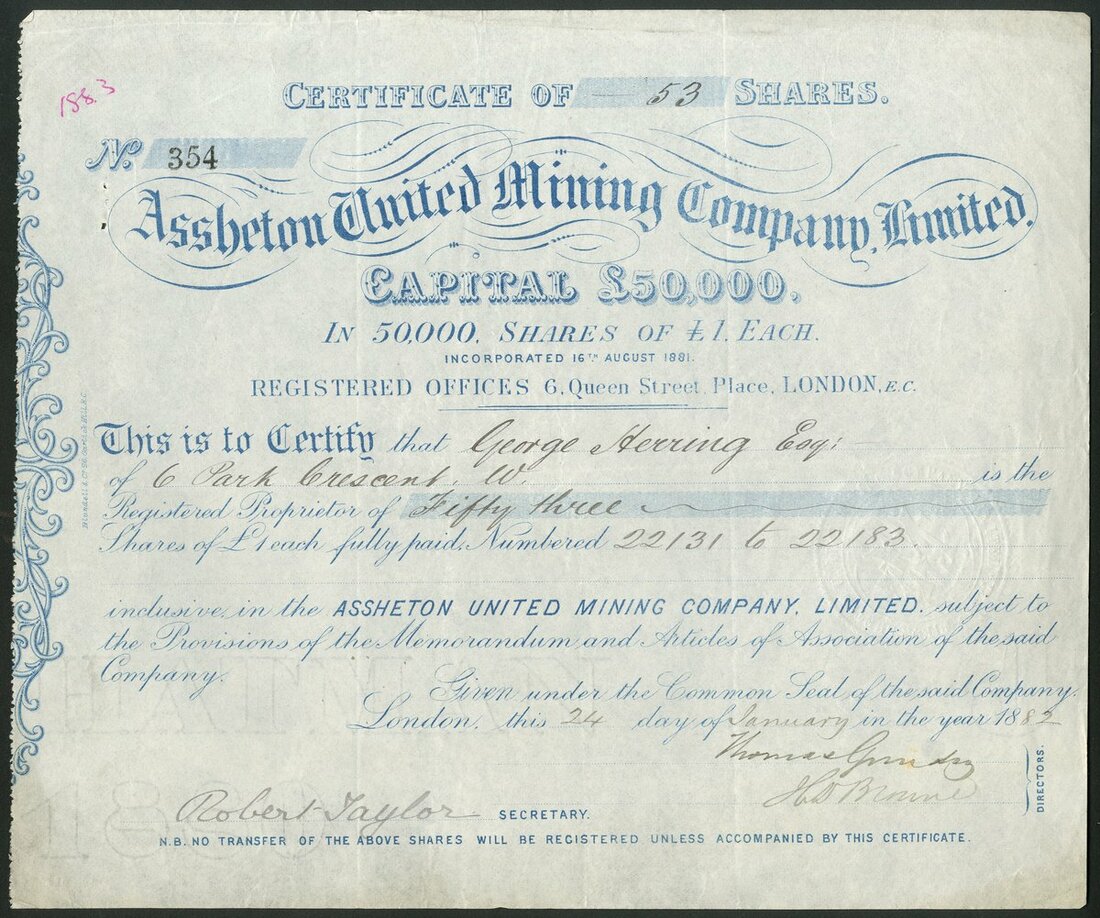 188.3
CERTIFICATE OF 53 SHARES.
No. 354
Assheton United Mining Company, Limited.
CAPITAL £50,000.
IN 50,000, SHARES OF £1, EACH.
INCORPORATED 16TH AUGUST 1881.
REGISTERED OFFICES 6, Queen Street, Place, LONDON, E.C.
This is to Certify that George Herring Esq:
of 6 Park Crescent. W. is the
Registered Proprietor of Fifty three
Shares of £1 each fully paid, Numbered 22131 to 22183
inclusive, in the ASSHETON UNITED MINING COMPANY, LIMITED. subject to
the Provisions of the Memorandum and Articles of Association of the said
Company.
Given under the Common Seal of the said Company.
London. this 24 day of January in the year 1882
Thomas
H D Browne
DIRECTORS.
Robert Taylor SECRETARY.
N.B. NO TRANSFER OF THE ABOVE SHARES WILL BE REGISTERED UNLESS ACCOMPANIED BY THIS CERTIFICATE.